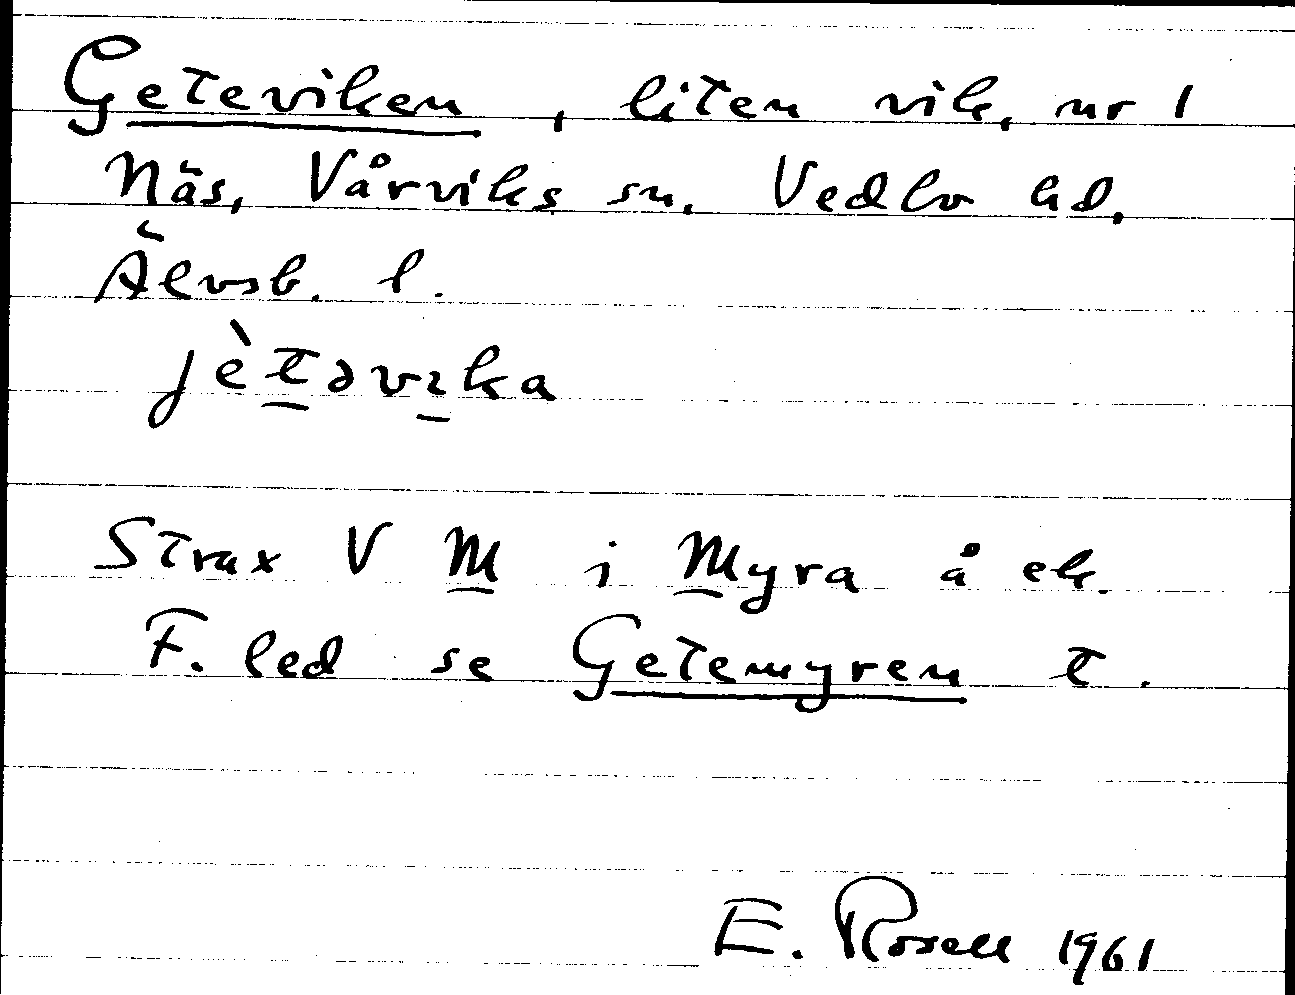 Geteviken, liten vik, nr 1
Näs, Vårviks sn. Vedbo hd.
Älvsb. l.
jètəvıka
Strax V M i Myra å ek.
F. led se Getemyren t.
E. Rosell 1961